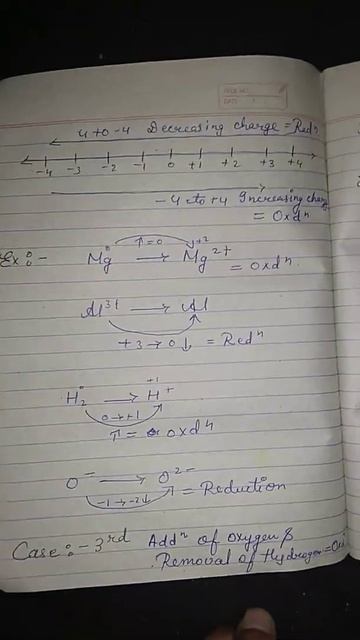 4 to -4 Decreasing charge = Redⁿ
-4 -3 -2 -1 0 +1 +2 +3 +4
-4 to +4 Increasing charge
= Oxdⁿ
Ex :-
↑=0 +2
Mg⁰ → Mg²⁺ = Oxdⁿ
Al³⁺ → Al
+3 → 0 ↓ = Redⁿ
+1
H₂⁰ → H⁺
0 → +1
↑ = oxdⁿ
O⁻ → O²⁻
-1 → -2 ↓ = Reduction
Case :- 3rd Addⁿ of oxygen &
Removal of Hydrogen =